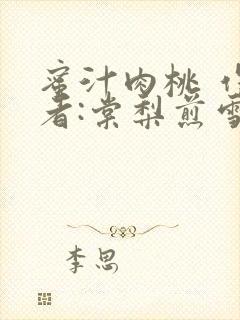 蜜汁肉桃 作
者:棠梨煎雪
李思